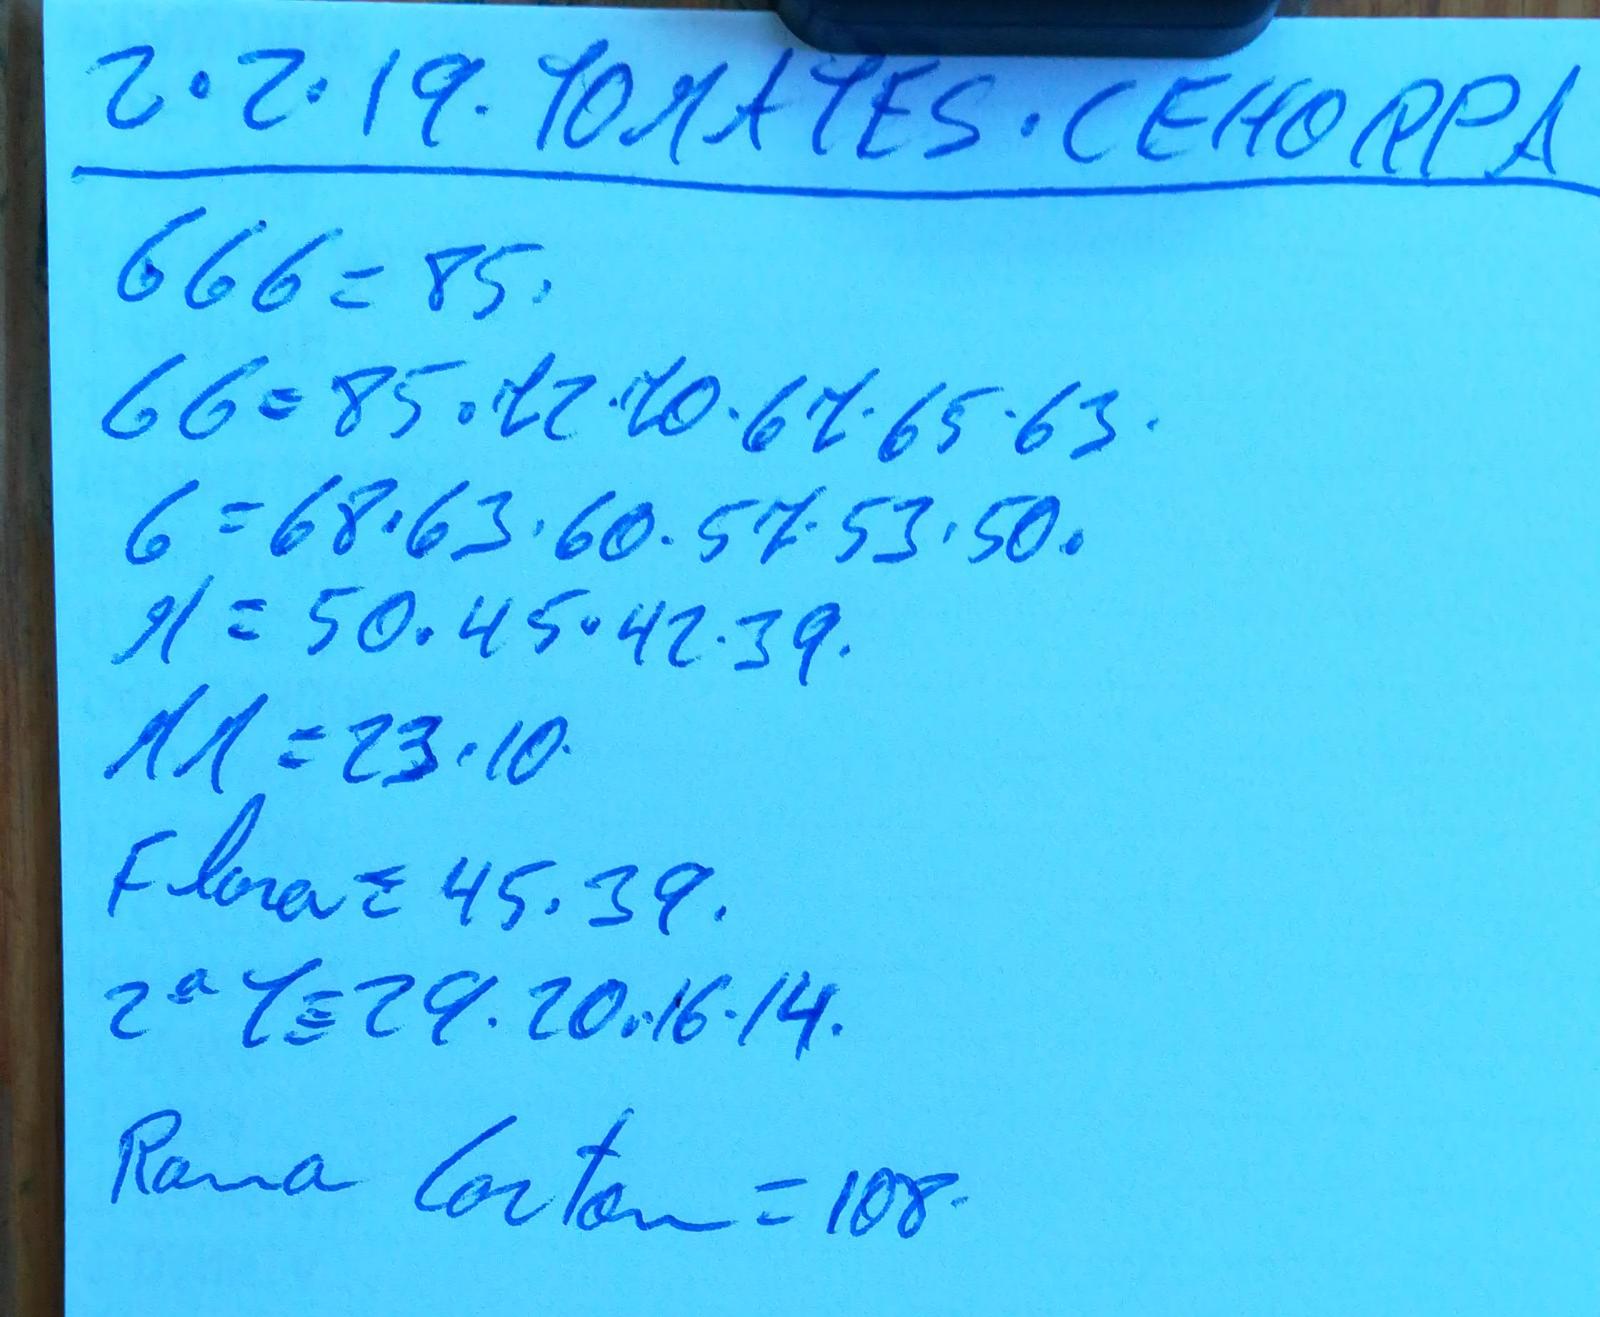 2.2.19. TOMATES. CEHORPA
666 = 85.
66 = 85.72.70.67.65.63.
6 = 68.63.60.57.53.50.
M = 50.45.42.39.
MM = 23.10.
Flora = 45.39.
2ª T = 29.20.16.14.
Rama Carton = 108.